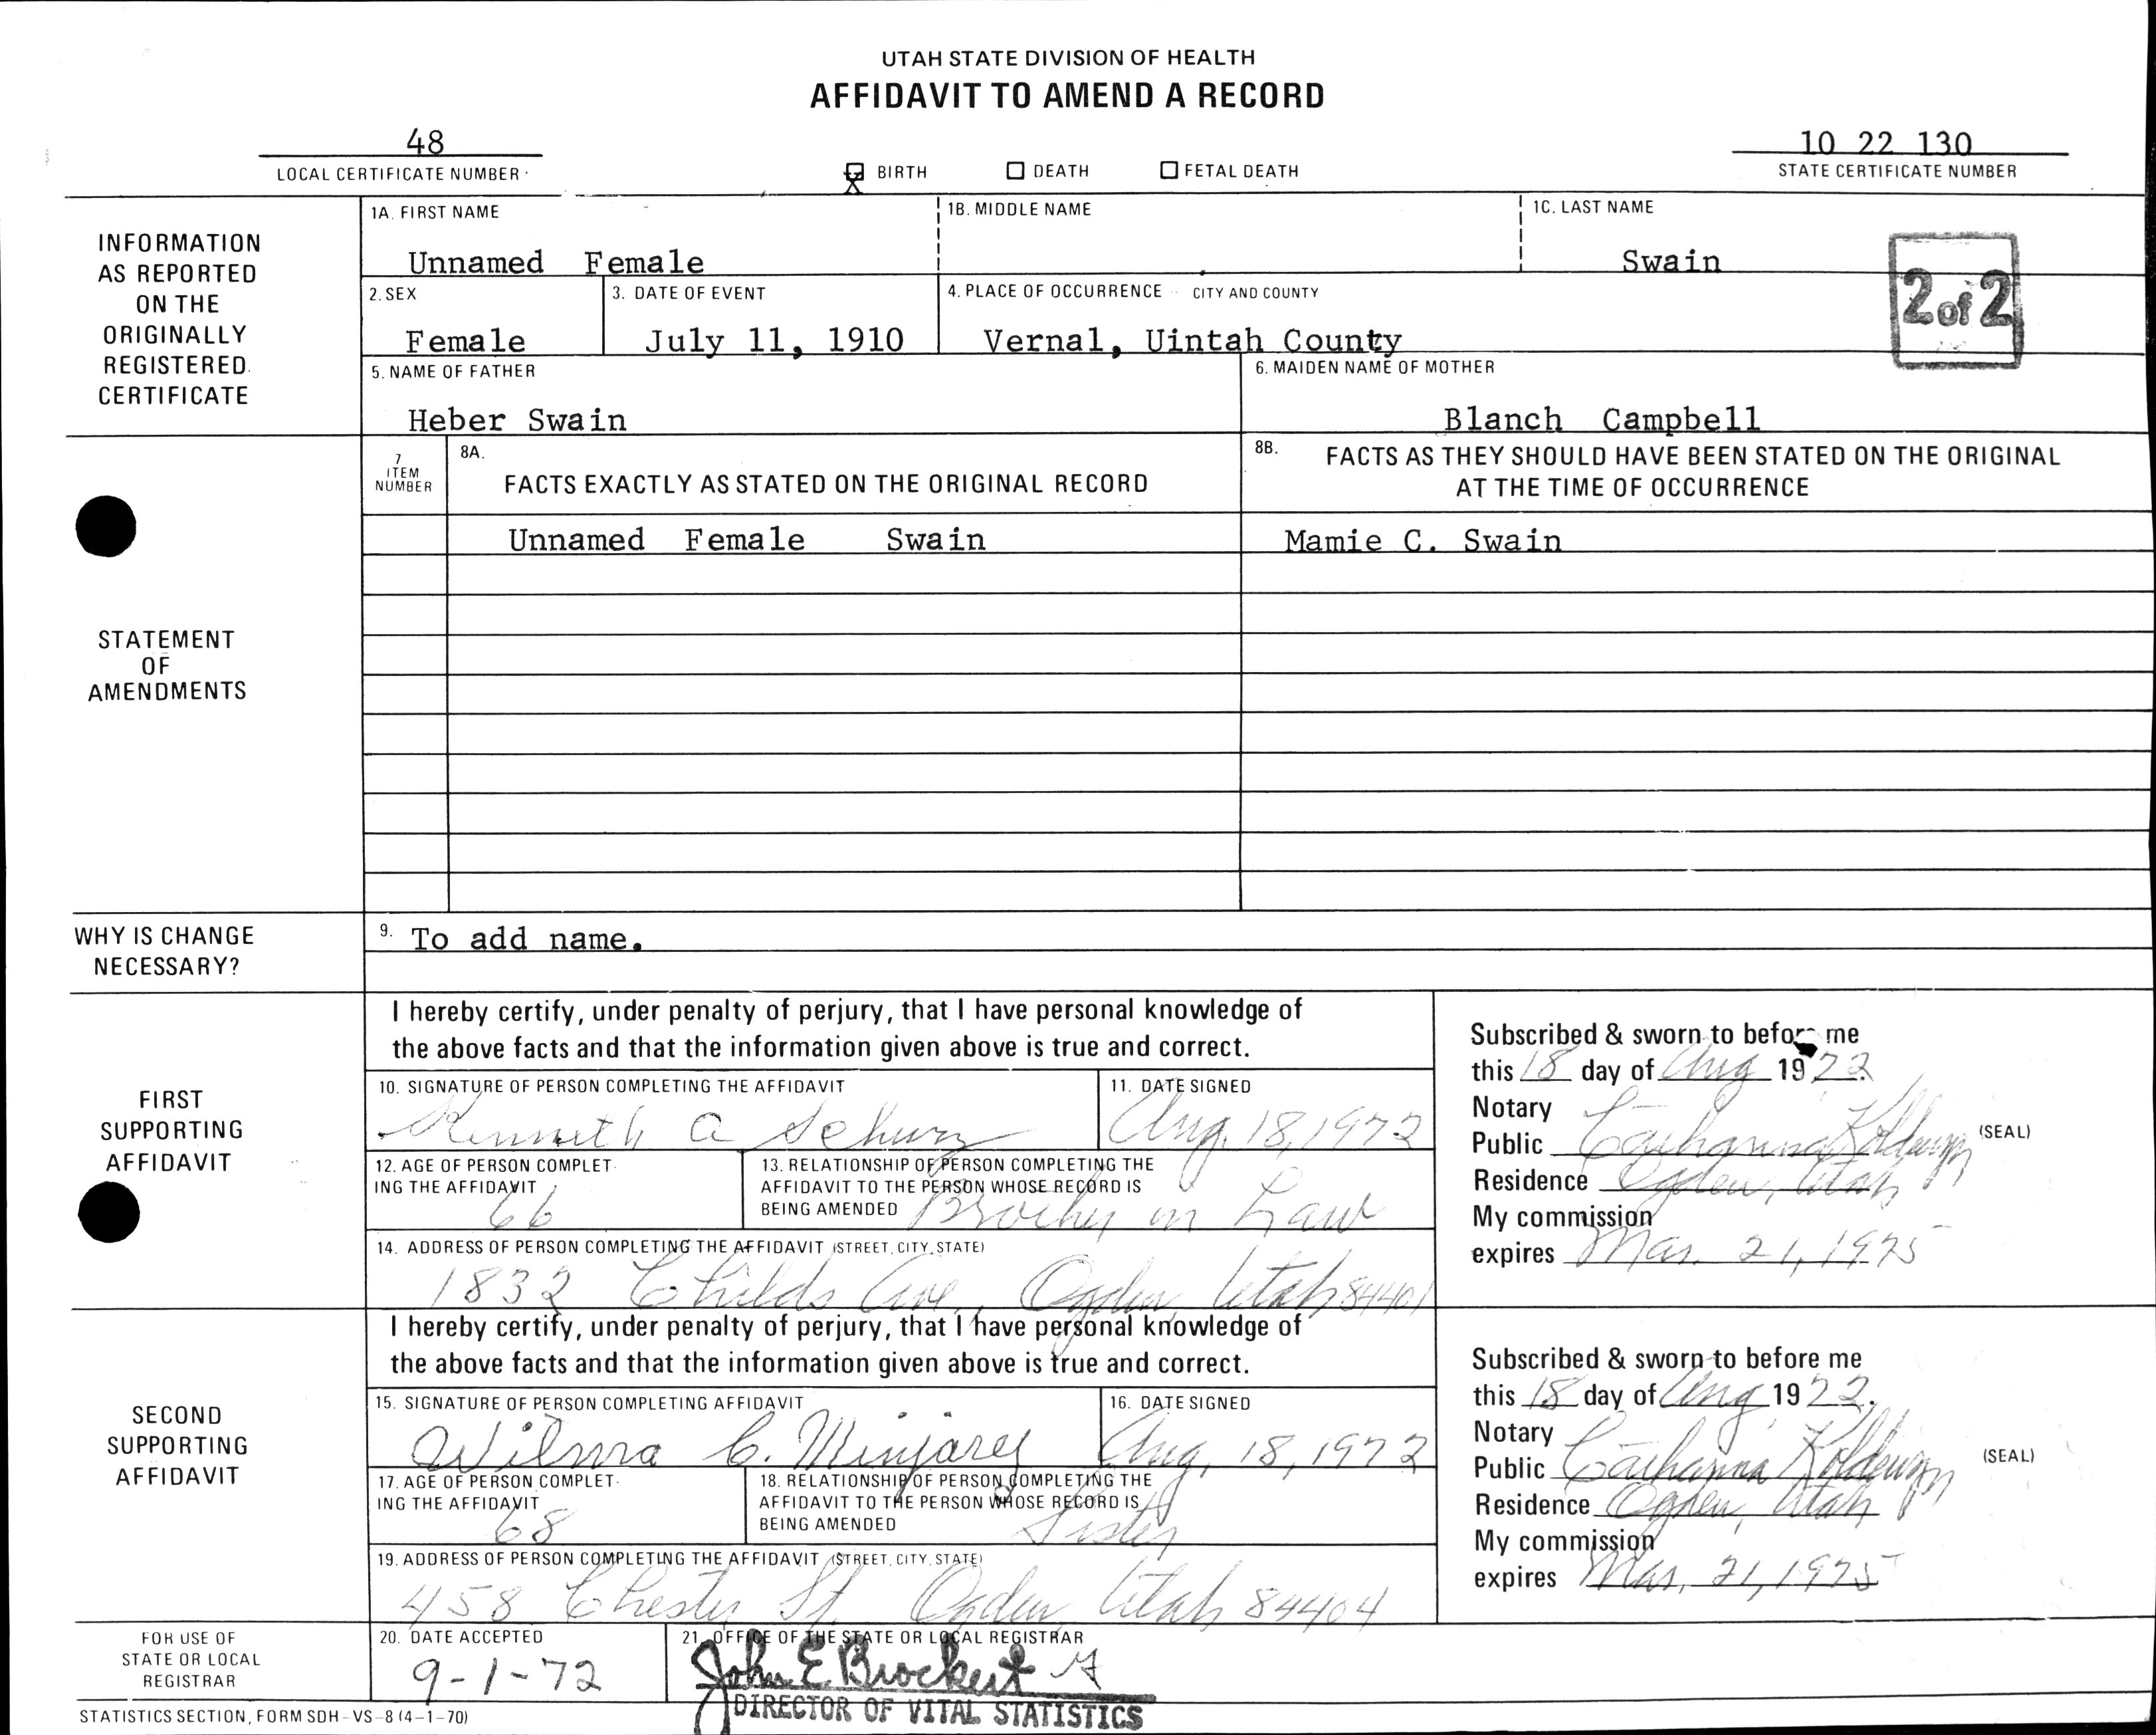 UTAH STATE DIVISION OF HEALTH
AFFIDAVIT TO AMEND A RECORD
48
10 22 130
LOCAL CERTIFICATE NUMBER
X BIRTH DEATH FETAL DEATH
STATE CERTIFICATE NUMBER
INFORMATION AS REPORTED ON THE ORIGINALLY REGISTERED CERTIFICATE
1A. FIRST NAME 1B. MIDDLE NAME 1C. LAST NAME
Unnamed Female Swain
2 of 2
2. SEX 3. DATE OF EVENT 4. PLACE OF OCCURRENCE CITY AND COUNTY
Female July 11, 1910 Vernal, Uintah County
5. NAME OF FATHER 6. MAIDEN NAME OF MOTHER
Heber Swain Blanch Campbell
STATEMENT OF AMENDMENTS
7 ITEM NUMBER
8A. FACTS EXACTLY AS STATED ON THE ORIGINAL RECORD
8B. FACTS AS THEY SHOULD HAVE BEEN STATED ON THE ORIGINAL
AT THE TIME OF OCCURRENCE
Unnamed Female Swain Mamie C. Swain
WHY IS CHANGE NECESSARY?
9. To add name.
FIRST SUPPORTING AFFIDAVIT
I hereby certify, under penalty of perjury, that I have personal knowledge of
the above facts and that the information given above is true and correct.
10. SIGNATURE OF PERSON COMPLETING THE AFFIDAVIT 11. DATE SIGNED
Kenneth A Aug. 18, 1972
12. AGE OF PERSON COMPLET-
ING THE AFFIDAVIT
66
13. RELATIONSHIP OF PERSON COMPLETING THE
AFFIDAVIT TO THE PERSON WHOSE RECORD IS
BEING AMENDED Brother in Law
14. ADDRESS OF PERSON COMPLETING THE AFFIDAVIT (STREET, CITY, STATE)
1832 Childs Ave., Ogden, Utah 84401
Subscribed & sworn to before me
this 18 day of Aug 1972.
Notary
Public Catharina (SEAL)
Residence Ogden, Utah
My commission
expires Mar. 21, 1975
SECOND SUPPORTING AFFIDAVIT
I hereby certify, under penalty of perjury, that I have personal knowledge of
the above facts and that the information given above is true and correct.
15. SIGNATURE OF PERSON COMPLETING AFFIDAVIT 16. DATE SIGNED
Wilma C. Minjarez Aug. 18, 1972
17. AGE OF PERSON COMPLET-
ING THE AFFIDAVIT
68
18. RELATIONSHIP OF PERSON COMPLETING THE
AFFIDAVIT TO THE PERSON WHOSE RECORD IS
BEING AMENDED Sister
19. ADDRESS OF PERSON COMPLETING THE AFFIDAVIT (STREET, CITY, STATE)
458 Chester St. Ogden, Utah 84404
Subscribed & sworn to before me
this 18 day of Aug 1972.
Notary
Public Catharina (SEAL)
Residence Ogden, Utah
My commission
expires Mar. 21, 1975
FOR USE OF STATE OR LOCAL REGISTRAR
20. DATE ACCEPTED 21. OFFICE OF THE STATE OR LOCAL REGISTRAR
9-1-72 John E Brockert
DIRECTOR OF VITAL STATISTICS
STATISTICS SECTION, FORM SDH-VS-8 (4-1-70)